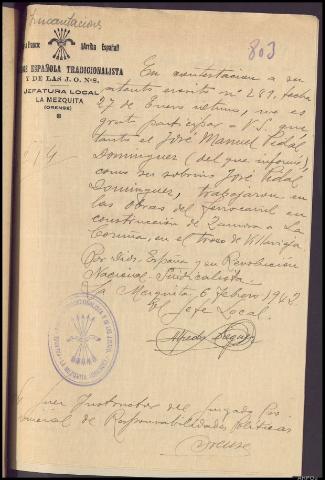 Incautacions
803
Franco ¡Arriba España!
ESPAÑOLA TRADICIONALISTA
Y DE LAS J. O. N-S.
JEFATURA LOCAL
LA MEZQUITA
(ORENSE)
En contestacion a su
atento escrito nº 281, fecha
27 de Enero ultimo, me es
grato participar a V.S. que
tanto el José Manuel Vidal
Dominguez (del que informé),
como su sobrino José Vidal
Dominguez, trabajaron en
las obras del Ferrocarril en
construcción de Zamora a La
Coruña, en el trozo de Vilarieja
Por Dios, España y su Revolución
Nacional-Sindicalista.
La Mezquita, 6 Febrero 1942
El Jefe Local.
Juez Instructor del Juzgado Pro
vincial de Responsabilidades Politicas
Orense